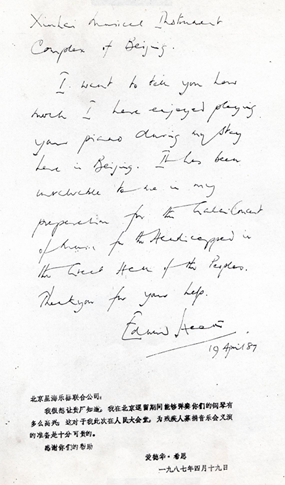 Xinhai Musical Instrument
Complex of Beijing.
I want to tell you how
much I have enjoyed playing
your piano during my stay
here in Beijing. It has been
invaluable to me in my
preparation for the Gala Concert
of Music for the Handicapped in
the Great Hall of the Peoples.
Thank you for your help.
Edward Heath
19 April 87
北京星海乐器联合公司:
我很想让贵厂知道,我在北京逗留期间能够弹奏你们的钢琴有
多么高兴,这对于我此次在人民大会堂,为残疾人募捐音乐会义演
的准备是十分可贵的。
感谢你们的帮助
爱德华·希思
一九八七年四月十九日